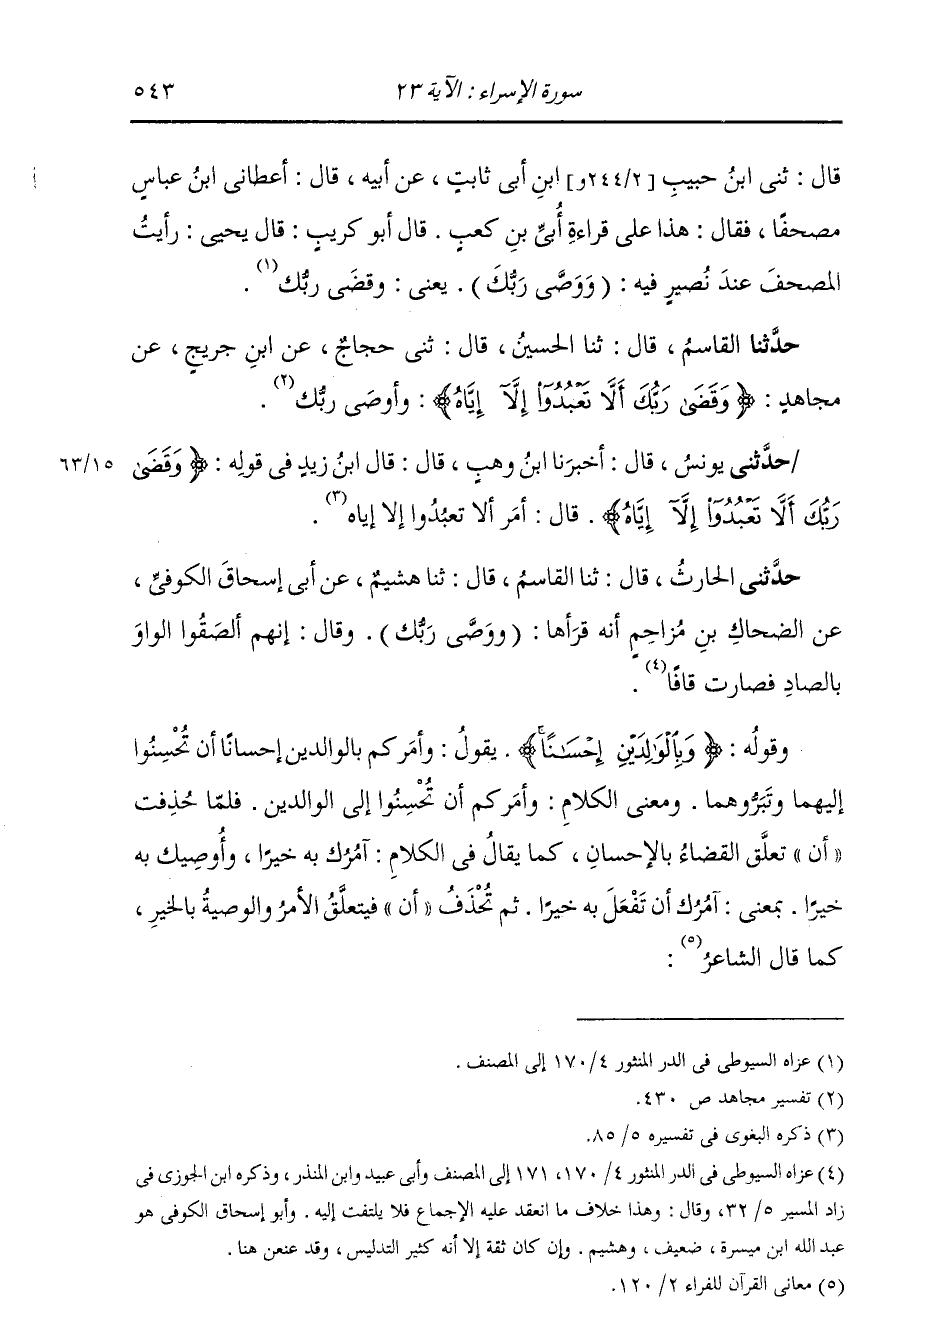 سورة الإسراء : الآية ٢٣ ٥٤٣
قال : ثنى ابنُ حبيبِ [٢/٢٤٤و] ابنِ أبى ثابتٍ ، عن أبيه ، قال : أعطانى ابنُ عباسٍ
مصحفًا ، فقال : هذا على قراءةِ أُبىِّ بنِ كعبٍ . قال أبو كريبٍ : قال يحيى : رأيتُ
المصحفَ عندَ نُصيرٍ فيه : ( وَوَصَّى رَبُّكَ ) . يعنى : وقضَى ربُّك(١) .
حدَّثنا القاسمُ ، قال : ثنا الحسينُ ، قال : ثنى حجاجٌ ، عن ابنِ جريجٍ ، عن
مجاهدٍ : ﴿ وَقَضَىٰ رَبُّكَ أَلَّا تَعْبُدُوٓا۟ إِلَّآ إِيَّاهُ﴾ : وأوصَى ربُّك(٢) .
/حدَّثنى يونسُ ، قال : أخبرَنا ابنُ وهبٍ ، قال : قال ابنُ زيدٍ فى قولِه : ﴿ وَقَضَىٰ ٦٣/١٥
رَبُّكَ أَلَّا تَعْبُدُوٓا۟ إِلَّآ إِيَّاهُ﴾ . قال : أمَر ألا تعبُدُوا إلا إياه(٣) .
حدَّثنى الحارثُ ، قال : ثنا القاسمُ ، قال : ثنا هشيمٌ ، عن أبى إسحاقَ الكوفىِّ ،
عن الضحاكِ بنِ مُزاحِمٍ أنه قرَأها : ( ووَصَّى رَبُّك ) . وقال : إنهم ألصَقُوا الواوَ
بالصادِ فصارت قافًا(٤) .
وقولُه : ﴿ وَبِٱلْوَٰلِدَيْنِ إِحْسَـٰنًاۚ﴾ . يقولُ : وأمَركم بالوالدين إحسانًا أن تُحْسِنُوا
إليهما وتَبَرُّوهما . ومعنى الكلامِ : وأمَركم أن تُحْسِنُوا إلى الوالدين . فلمّا حُذِفت
« أن » تعلَّق القضاءُ بالإحسانِ ، كما يقالُ فى الكلامِ : آمُرُك به خيرًا ، وأُوصِيك به
خيرًا . بمعنى : آمُرُك أن تَفْعَلَ به خيرًا . ثم تُحْذَفُ « أن » فيتعلَّقُ الأمرُ والوصيةُ بالخيرِ ،
كما قال الشاعرُ(٥) :
(١) عزاه السيوطى فى الدر المنثور ٤/ ١٧٠ إلى المصنف .
(٢) تفسير مجاهد ص ٤٣٠.
(٣) ذكره البغوى فى تفسيره ٥/ ٨٥.
(٤) عزاه السيوطى فى الدر المنثور ٤/ ١٧٠، ١٧١ إلى المصنف وأبى عبيد وابن المنذر ، وذكره ابن الجوزى فى
زاد المسير ٥/ ٣٢، وقال : وهذا خلاف ما انعقد عليه الإجماع فلا يلتفت إليه . وأبو إسحاق الكوفى هو
عبد الله ابن ميسرة ، ضعيف ، وهشيم . وإن كان ثقة إلا أنه كثير التدليس ، وقد عنعن هنا .
(٥) معانى القرآن للفراء ٢/ ١٢٠.